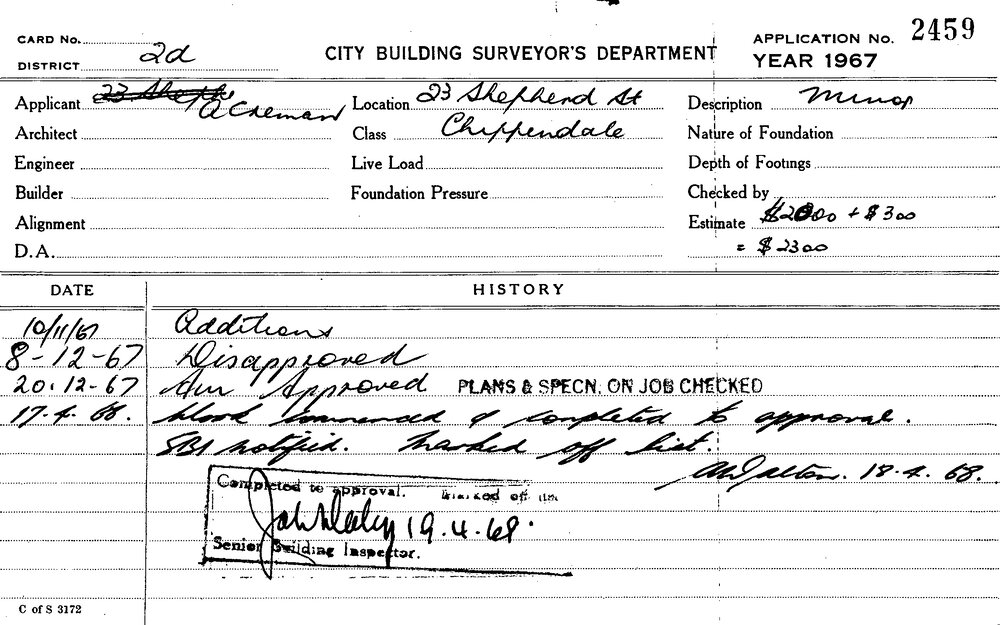 CARD No.
DISTRICT 2d
CITY BUILDING SURVEYOR'S DEPARTMENT
APPLICATION No. 2459
YEAR 1967
Applicant 23 Sheph A Cheman
Location 23 Shepherd St
Description Minor
Architect
Class Chippendale
Nature of Foundation
Engineer
Live Load
Depth of Footings
Builder
Foundation Pressure
Checked by
Alignment
Estimate $2000 + $300
D.A.
= $2300
DATE
HISTORY
10/11/67 Additions
8-12-67 Disapproved
20.12-67 Approved PLANS & SPECN. ON JOB CHECKED
17.4.68. Work commenced & completed to approval.
SBI notified. Marked off list.
18.4.68.
Completed to approval. Marked off
19.4.68.
Senior Building Inspector.
C of S 3172